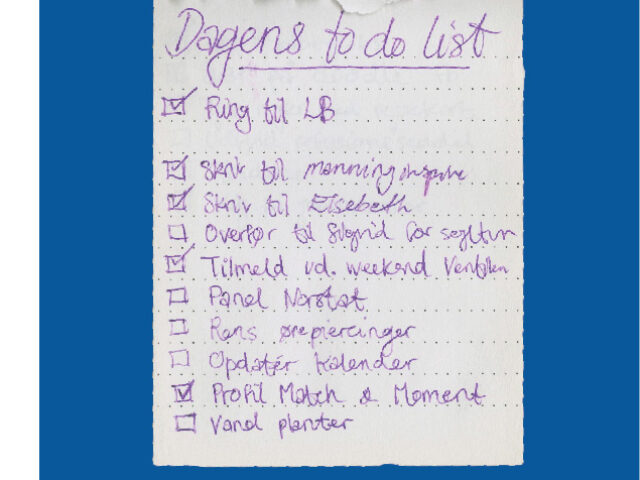 Dagens to do list
Ring til LB
Skriv til
Skriv til Elsebeth
Overfør til Sigrid for sejltur
Tilmeld vd. weekend
Panel Norstat
Rens ørepiercinger
Opdatér kalender
Profil Match & Moment
Vand planter